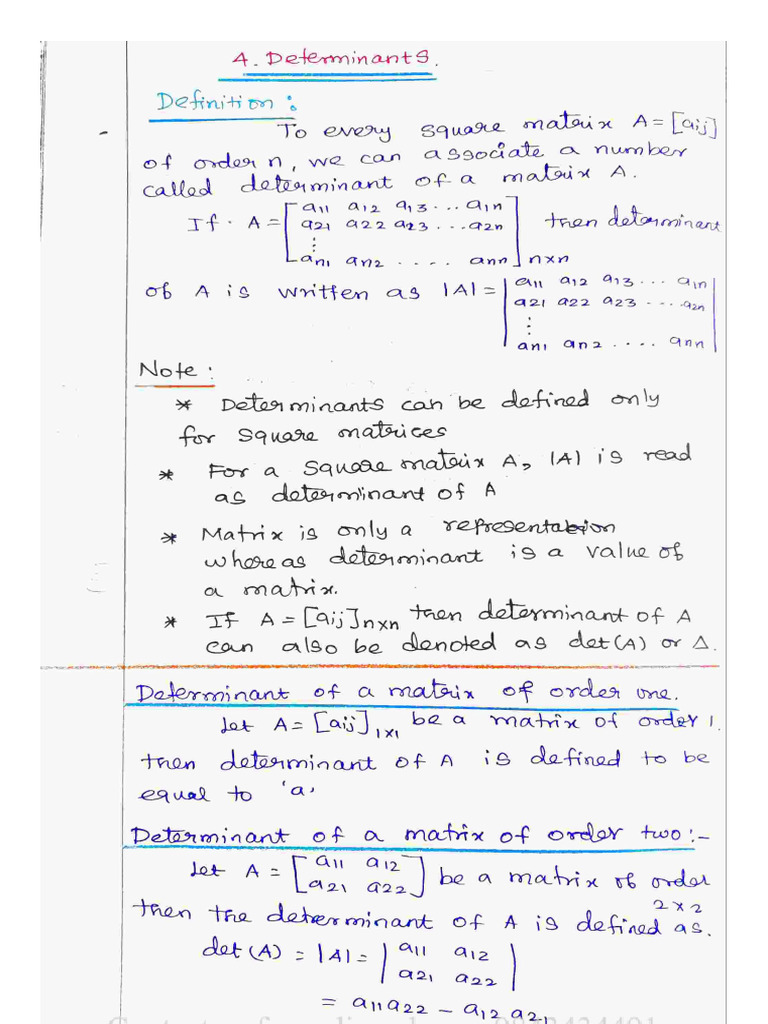 4. Determinants.
Definition :
To every square matrix A = [aij]
of order n, we can associate a number
called determinant of a matrix A.
If A = [a11 a12 a13 ... a1n
a21 a22 a23 ... a2n
⋮
an1 an2 .... ann]n×n then determinant
of A is written as |A| = |a11 a12 a13 ... a1n
a21 a22 a23 .... a2n
⋮
an1 an2 .... ann|
Note :
* Determinants can be defined only
for square matrices
* For a square matrix A, |A| is read
as determinant of A
* Matrix is only a representation
where as determinant is a value of
a matrix.
* If A = [aij]n×n then determinant of A
can also be denoted as det(A) or Δ.
Determinant of a matrix of order one.
Let A = [aij]1×1 be a matrix of order 1.
then determinant of A is defined to be
equal to 'a'
Determinant of a matrix of order two :-
Let A = [a11 a12
a21 a22] be a matrix of order
2×2
then the determinant of A is defined as.
det(A) = |A| = |a11 a12
a21 a22|
= a11a22 - a12 a21